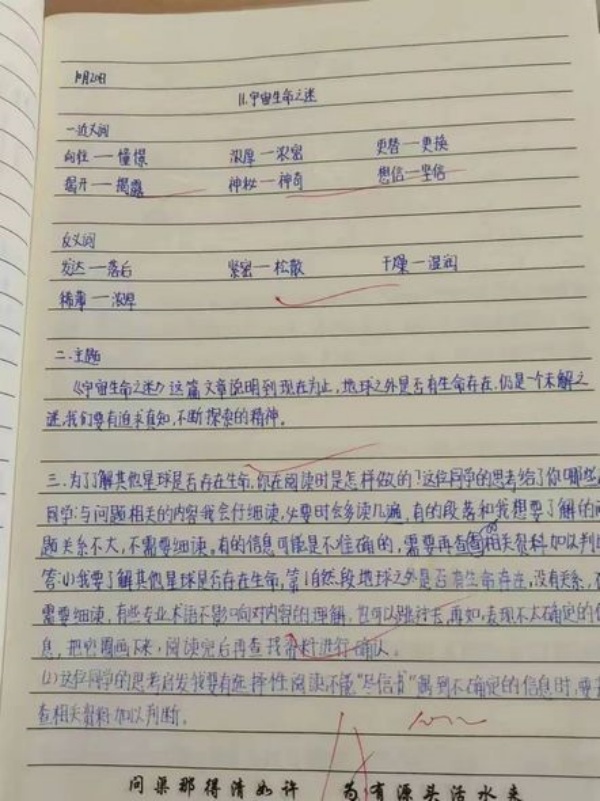 10月20日
11.宇宙生命之迷
一.近义词
向往——憧憬 浓厚——浓密 更替——更换
揭开——揭露 神秘——神奇 想信——坚信
反义词
发达——落后 紧密——松散 干燥——湿润
稀薄——浓厚
二.主题
《宇宙生命之迷》这篇文章说明到现在为止,地球之外是否有生命存在,仍是一个未解之
迷,我们要有追求真知,不断探索的精神。
三.为了了解其他星球是否存在生命,你在阅读时是怎样做的?这位同学的思考给了你哪些
同学:与问题相关的内容我会仔细读,必要时会多读几遍,有的段落和我想要了解的问
题关系不大,不需要细读,有的信息可能是不准确的,需要再查查相关资料加以判
答:(1)我要了解其他星球是否存在生命,第1自然段地球之外是否有生命存在,没有关系,
需要细读,有些专业术语不影响对内容的理解,也可以跳过去,再如,表现不太确定的信
息,把它圈画下来,阅读完后再查找资料进行确认。
(2)这位同学的思考启发我要有选择性阅读不能“尽信书”遇到不确定的信息时,要
查相关资料加以判断。
问渠那得清如许 为有源头活水来